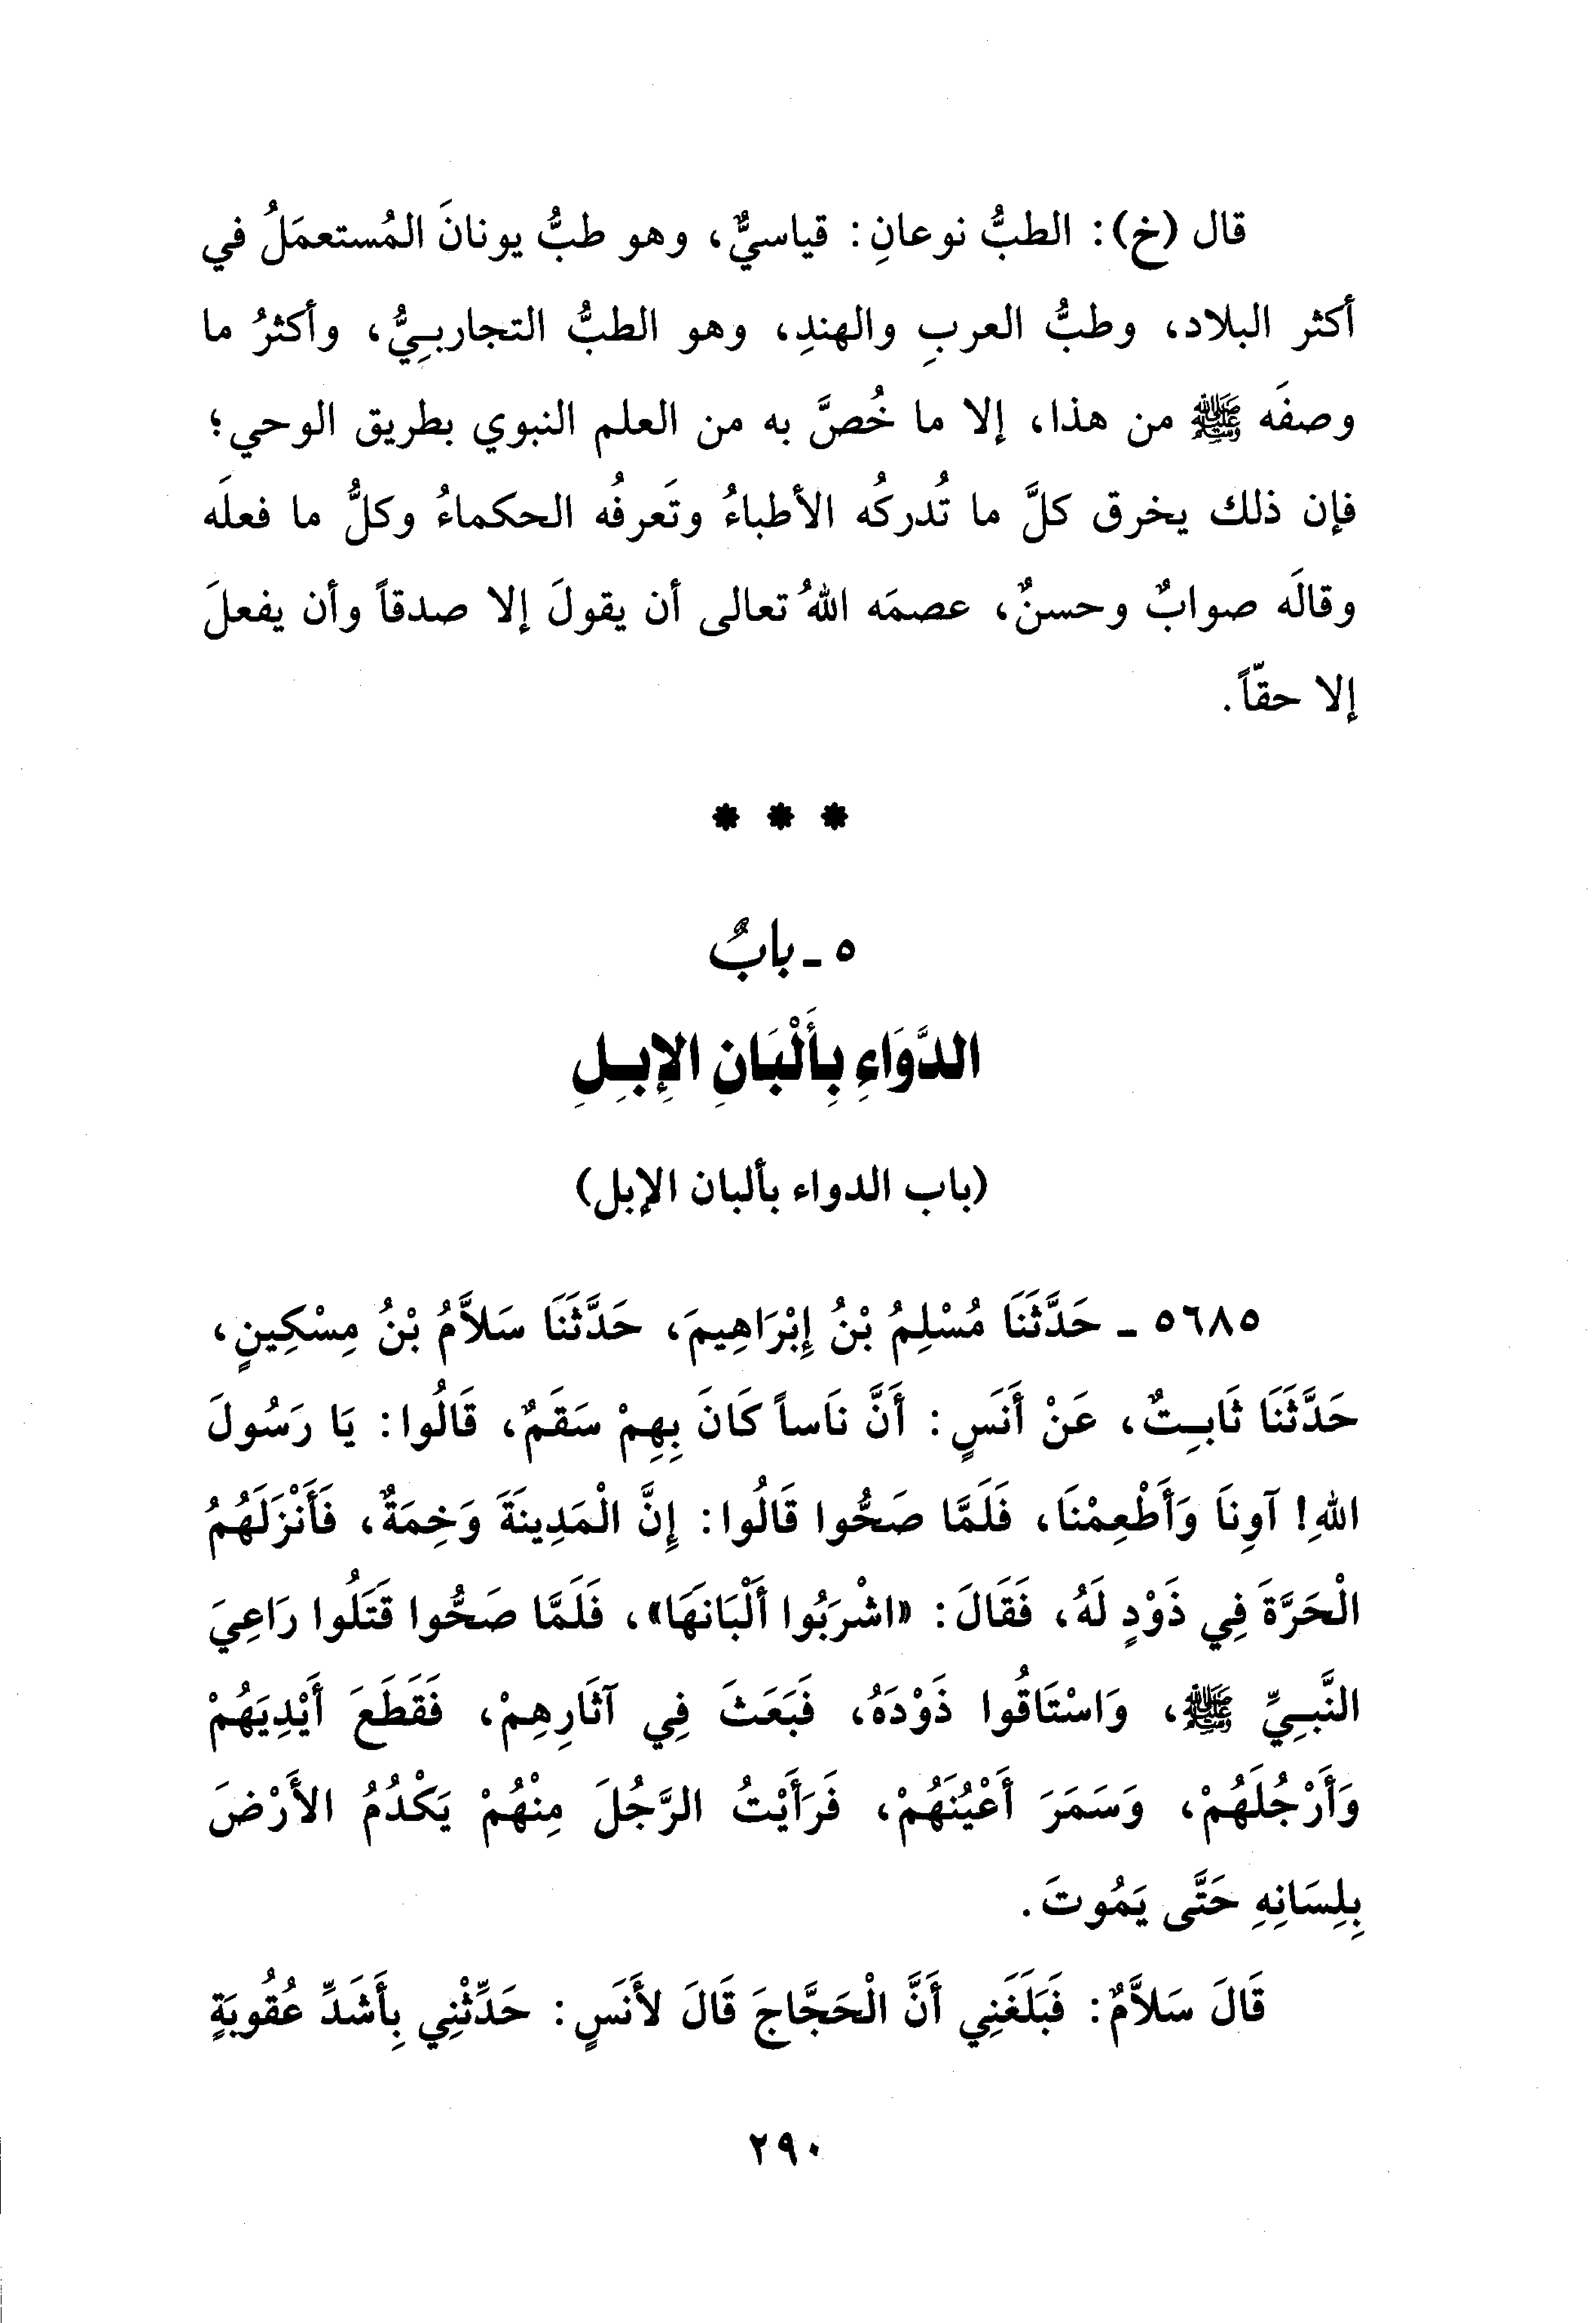 قال (خ): الطبُّ نوعانِ: قياسيٌّ، وهو طبُّ يونانَ المُستعمَلُ في
أكثر البلاد، وطبُّ العربِ والهندِ، وهو الطبُّ التجاربِيُّ، وأكثرُ ما
وصفَه ﷺ من هذا، إلا ما خُصَّ به من العلم النبوي بطريق الوحي؛
فإن ذلك يخرق كلَّ ما تُدركُه الأطباءُ وتَعرفُه الحكماءُ وكلُّ ما فعلَه
وقالَه صوابٌ وحسنٌ، عصمَه اللهُ تعالى أن يقولَ إلا صدقاً وأن يفعلَ
إلا حقّاً.
* * *
٥ - بابُ
الدَّوَاءِ بِأَلْبَانِ الإِبِلِ
(باب الدواء بألبان الإبل)
٥٦٨٥ - حَدَّثَنَا مُسْلِمُ بْنُ إِبْرَاهِيمَ، حَدَّثَنَا سَلاَّمُ بْنُ مِسْكِينٍ،
حَدَّثَنَا ثَابِتٌ، عَنْ أَنَسٍ: أَنَّ نَاساً كَانَ بِهِمْ سَقَمٌ، قَالُوا: يَا رَسُولَ
اللهِ! آوِنَا وَأَطْعِمْنَا، فَلَمَّا صَحُّوا قَالُوا: إِنَّ الْمَدِينَةَ وَخِمَةٌ، فَأَنْزَلَهُمُ
الْحَرَّةَ فِي ذَوْدٍ لَهُ، فَقَالَ: «اشْرَبُوا أَلْبَانَهَا»، فَلَمَّا صَحُّوا قَتَلُوا رَاعِيَ
النَّبِيِّ ﷺ، وَاسْتَاقُوا ذَوْدَهُ، فَبَعَثَ فِي آثَارِهِمْ، فَقَطَعَ أَيْدِيَهُمْ
وَأَرْجُلَهُمْ، وَسَمَرَ أَعْيُنَهُمْ، فَرَأَيْتُ الرَّجُلَ مِنْهُمْ يَكْدُمُ الأَرْضَ
بِلِسَانِهِ حَتَّى يَمُوتَ.
قَالَ سَلاَّمٌ: فَبَلَغَنِي أَنَّ الْحَجَّاجَ قَالَ لأَنَسٍ: حَدِّثْنِي بِأَشَدِّ عُقُوبَةٍ
٢٩٠